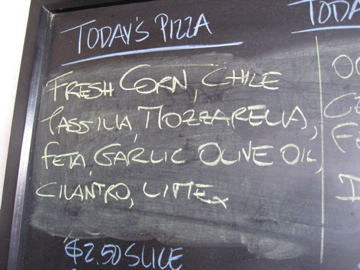 TODAY'S PIZZA
FRESH CORN, CHILE
PASSILIA, MOZZARELLA,
FETA, GARLIC OLIVE OIL,
CILANTRO, LIME
$2.50 SLICE
TODA